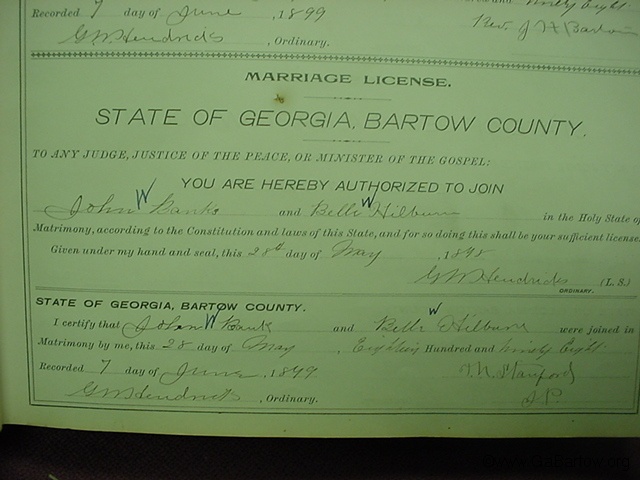 Recorded 7 day of June, 1899
ninety Eight
GW Hendricks, Ordinary.
Rev. J H
MARRIAGE LICENSE.
STATE OF GEORGIA, BARTOW COUNTY.
TO ANY JUDGE, JUSTICE OF THE PEACE, OR MINISTER OF THE GOSPEL:
YOU ARE HEREBY AUTHORIZED TO JOIN
W W
John Banks and Belle Hilburn in the Holy State of
Matrimony, according to the Constitution and laws of this State, and for so doing this shall be your sufficient license.
Given under my hand and seal, this 28th day of May, 1898
GW Hendricks (L. S.)
ORDINARY.
STATE OF GEORGIA, BARTOW COUNTY.
W W
I certify that John Bank and Belle Hilburn were joined in
Matrimony by me, this 28 day of May, Eighteen Hundred and ninety Eight
Recorded 7 day of June, 1899
GW Hendricks, Ordinary.
J.P.